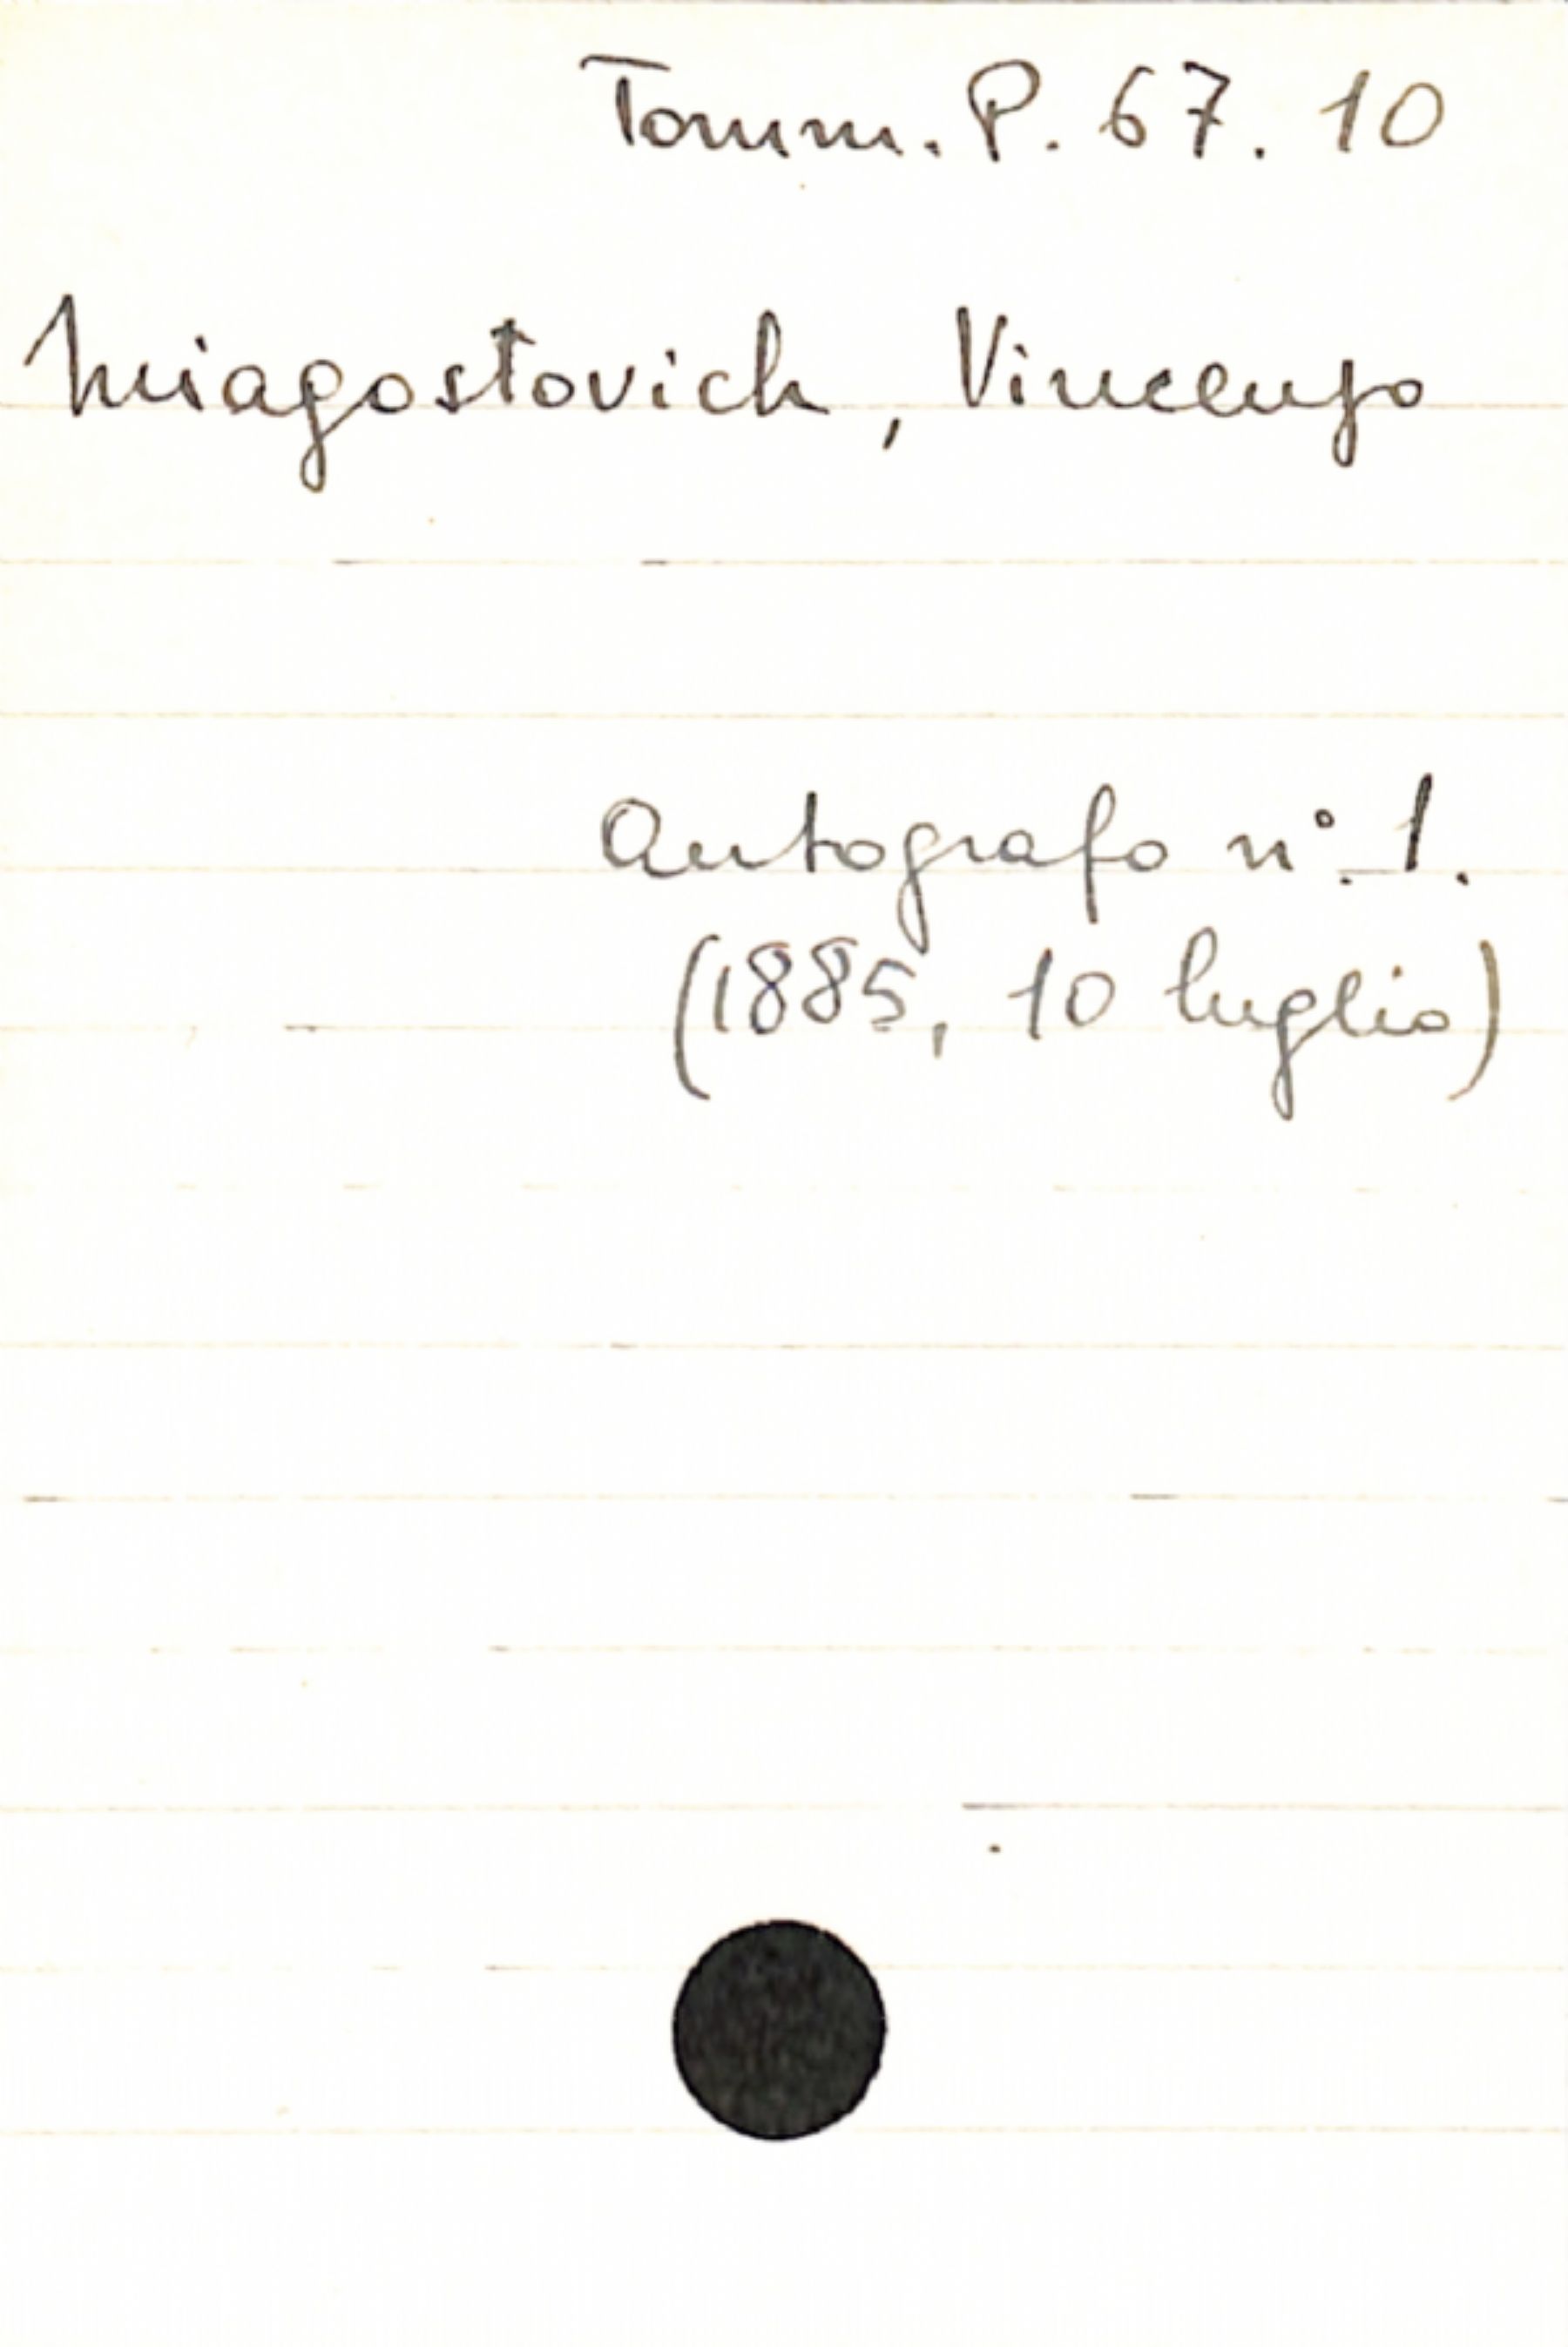 Tomm. P. 67. 10
Miagostovich, Vincenzo
Autografo n°. 1.
(1885, 10 luglio)